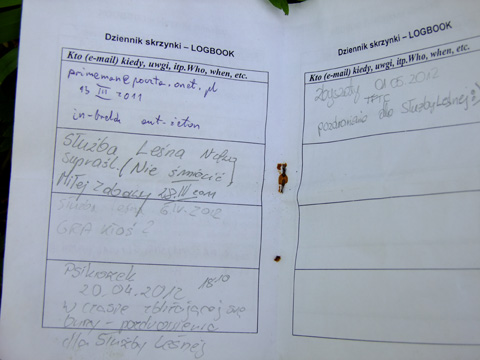 Dziennik skrzynki – LOGBOOK
Kto (e-mail) kiedy, uwgi, itp.Who, when, etc.
primeman@poczta.onet.pl
13 III 2011
in-
out-
Służba Leśna Nadl.
Supraśl (Nie śmiecić)
Miłej zabawy 28.III
Służba Leśna 6 IV-2012
GRA
Psikorek 18:10
20.04.2012
w czasie zbliżającej się
burzy - pozdrowienia
dla Służby Leśnej
Dziennik skrzynki – LOGBOOK
Kto (e-mail) kiedy, uwgi, itp.Who, when, etc.
01 05 2012
TFTF
pozdrowienia dla Służby Leśnej